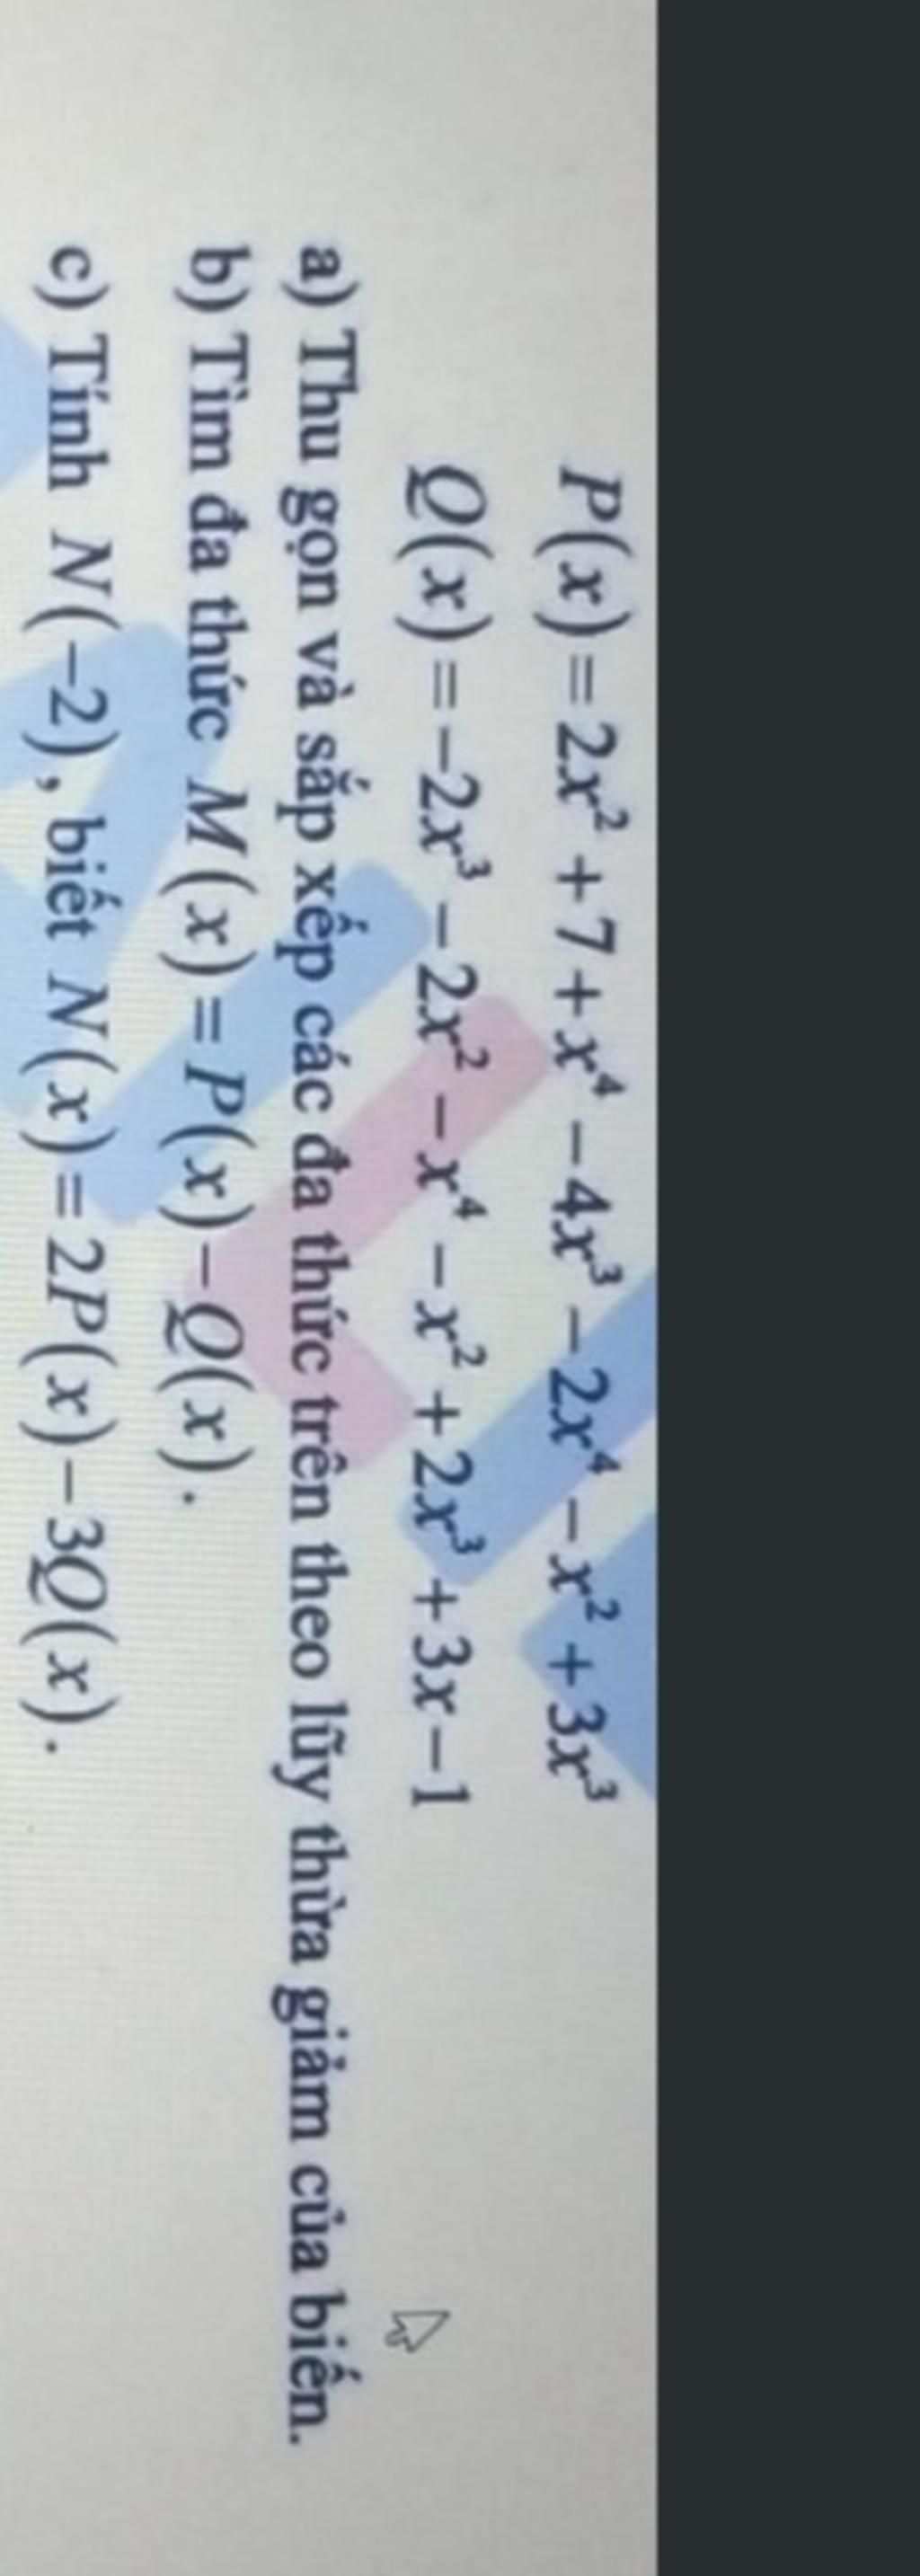 P(x) = 2x² + 7 + x⁴ − 4x³ − 2x⁴ − x² + 3x³
Q(x) = −2x³ − 2x² − x⁴ − x² + 2x³ + 3x − 1
a) Thu gọn và sắp xếp các đa thức trên theo lũy thừa giảm của biến.
b) Tìm đa thức M(x) = P(x) − Q(x).
c) Tính N(−2), biết N(x) = 2P(x) − 3Q(x).